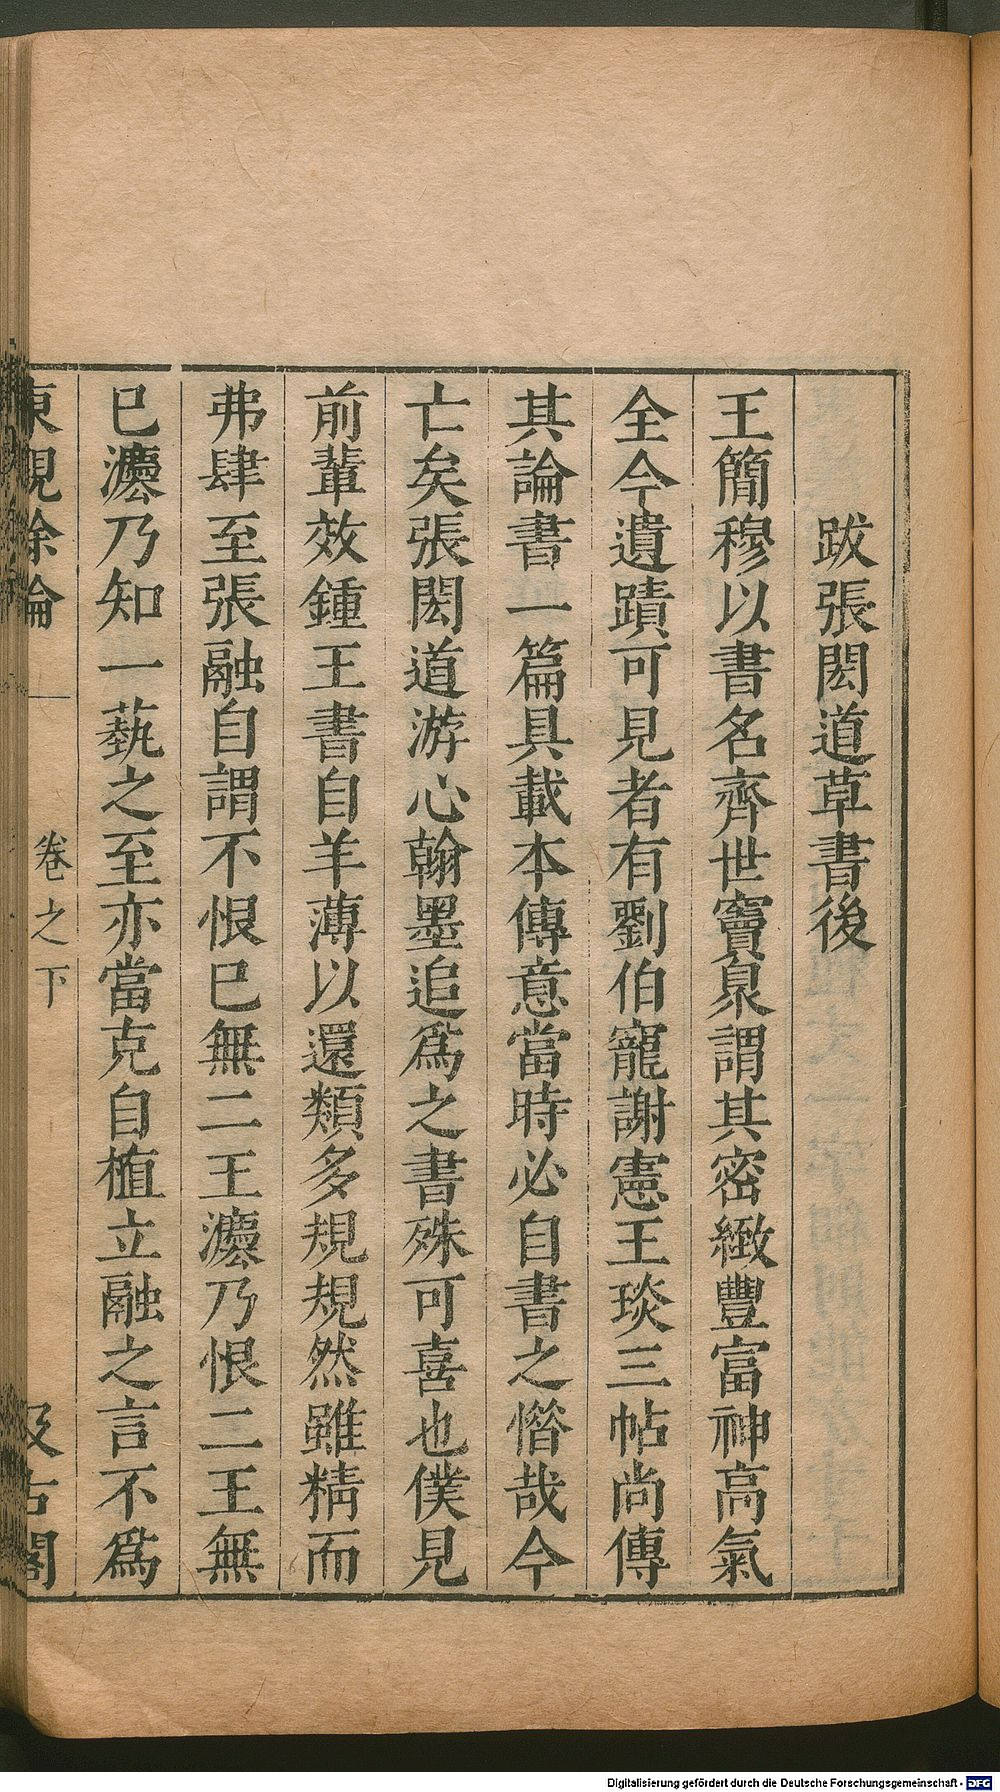 跋張閎道草書後
王簡穆以書名齊世竇臮謂其密緻豐富神高氣
全今遺蹟可見者有劉伯寵謝憲王琰三帖尚傳
其論書一篇具載本傳意當時必自書之惜哉今
亡矣張閎道游心翰墨追為之書殊可喜也僕見
前輩效鍾王書自羊薄以還類多規規然雖精而
弗肆至張融自謂不恨已無二王灋乃恨二王無
已灋乃知一藝之至亦當克自植立融之言不為
東觀餘論 卷之下 汲古閣
Digitalisierung gefördert durch die Deutsche Forschungsgemeinschaft - DFG